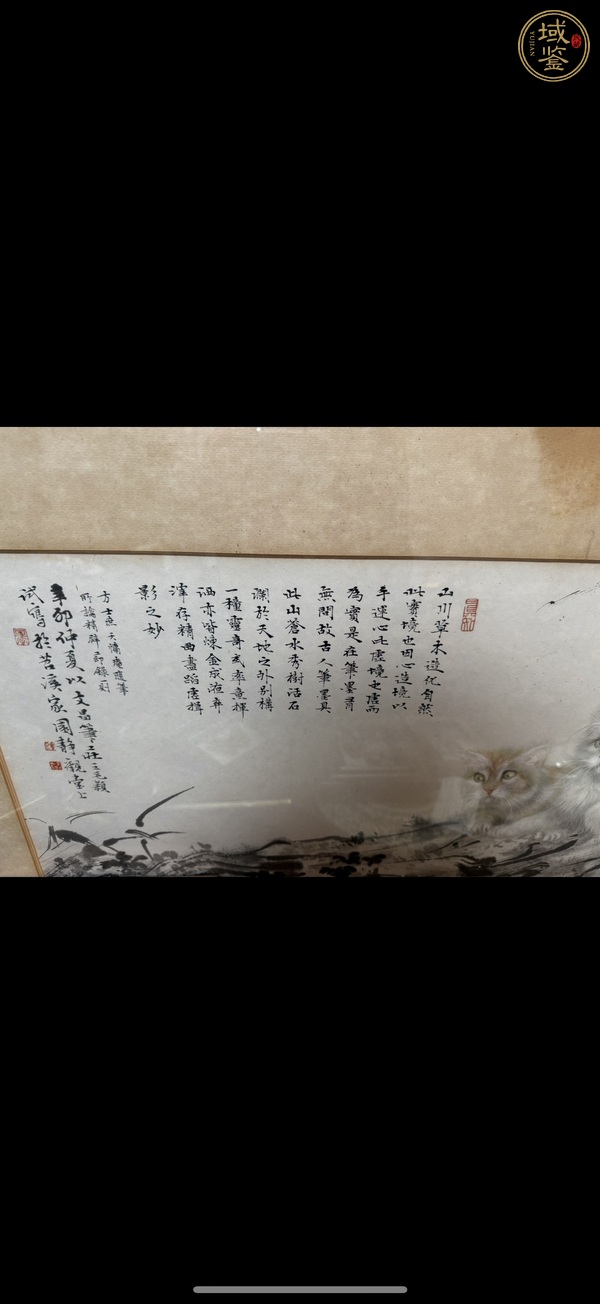 域鉴
YUJIAN
山川草木造化自然
此實境也因心造境以
手運心此虛境也虛而
為實是在筆墨有
無間故古人筆墨具
此山蒼水秀樹活石
潤於天地之外別構
一種靈奇或率意揮
洒亦皆煉金成液棄
滓存精曲盡蹈虛揖
影之妙
方士庶天慵庵隨筆
所論精辟節錄一則
辛卯仲夏以文昌筆莊之毛穎
試寫於苕溪家園靜觀堂上